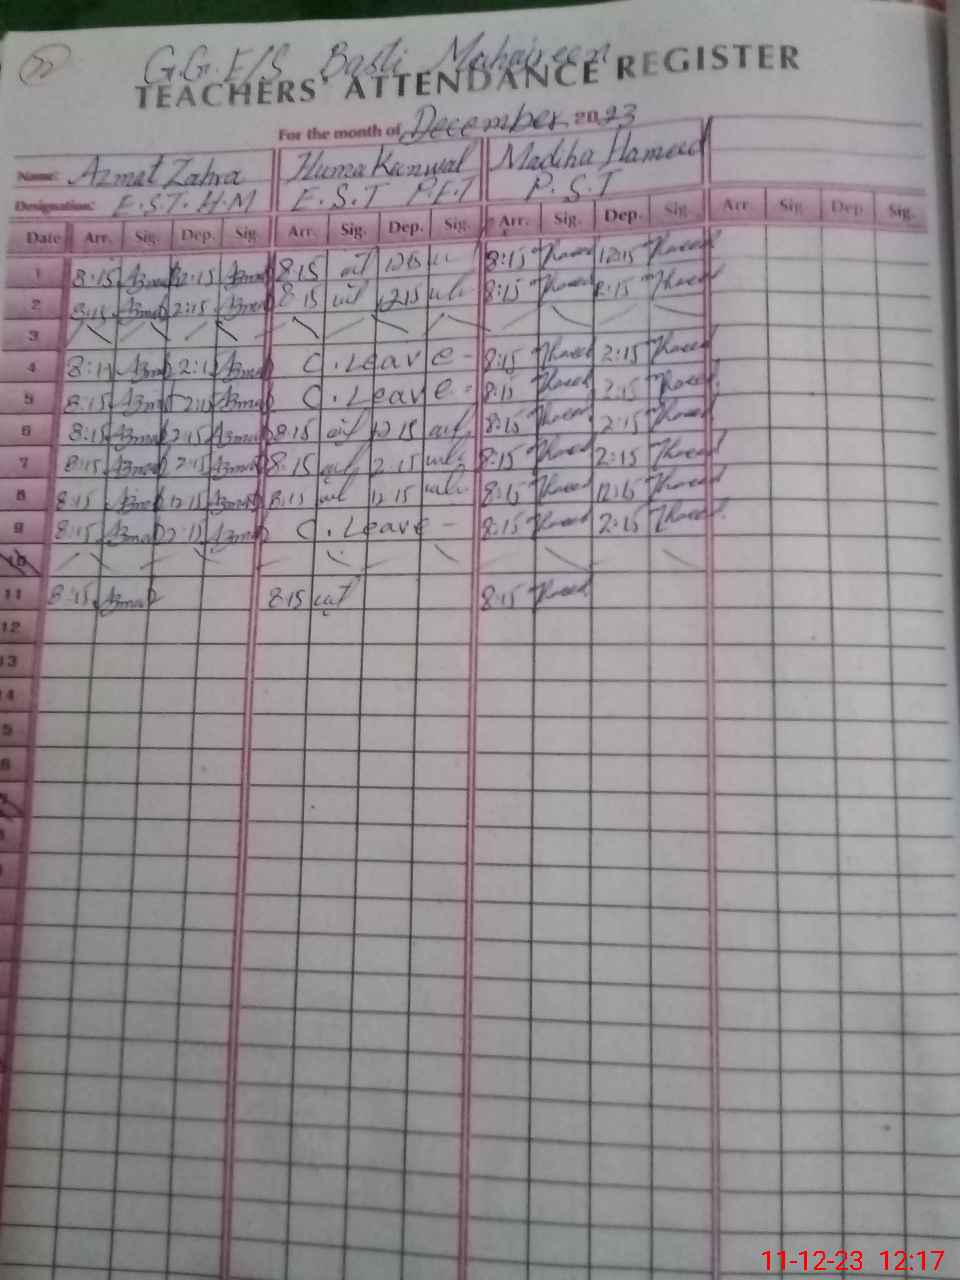 G.G.E/S Basti Mahaireen
TEACHERS' ATTENDANCE REGISTER
For the month of December 2023
Name: Azmat Zahra Huma Kanwal Madiha Hameed
Designation: E.S.T. H.M E.S.T P.E.T P.S.T
Date Arr. Sig. Dep. Sig. Arr. Sig. Dep. Sig. Arr. Sig. Dep. Sig. Arr. Sig. Dep. Sig.
1 8:15 Azmat 12:15 Azmat 8:15 12:15 8:15 12:15
2 8:15 Azmat 2:15 Azmat 8:15 12:15 8:15 2:15
3
4 8:15 Azmat 2:15 Azmat C.Leave - 8:15 2:15
5 8:15 Azmat 2:15 Azmat C.Leave - 8:15 2:15
6 8:15 Azmat 2:15 Azmat 8:15 12:15 8:15 2:15
7 8:15 Azmat 2:15 Azmat 8:15 2:15 8:15 2:15
8 8:15 Azmat 12:15 Azmat 8:15 12:15 8:15 12:15
9 8:15 Azmat 2:15 Azmat C.Leave - 8:15 2:15
10
11 8:15 Azmat 8:15 8:15
12
13
14
5
6
11-12-23 12:17